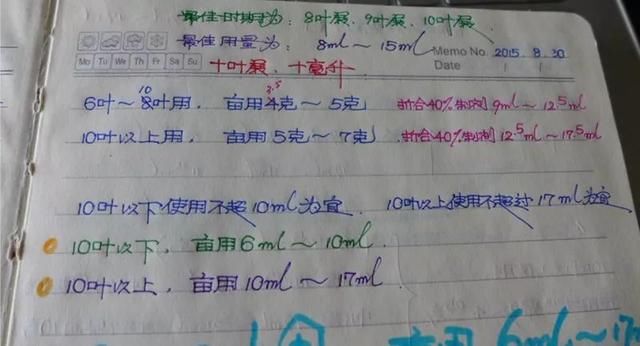 最佳时期为：8叶展、9叶展、10叶展
最佳用量为：8ml～15ml
Memo No. 2015. 8. 30
Mo Tu We Th Fr Sa Su
Date / /
十叶展，十毫升
6叶～10叶用，亩用3.5克～5克 折合40%制剂9ml～12.5ml
10叶以上用，亩用5克～7克 折合40%制剂12.5ml～17.5ml
10叶以下使用不超10ml为宜 10叶以上使用不超过17ml为宜
10叶以下，亩用6ml～10ml
10叶以上，亩用10ml～17ml
亩用6ml～17